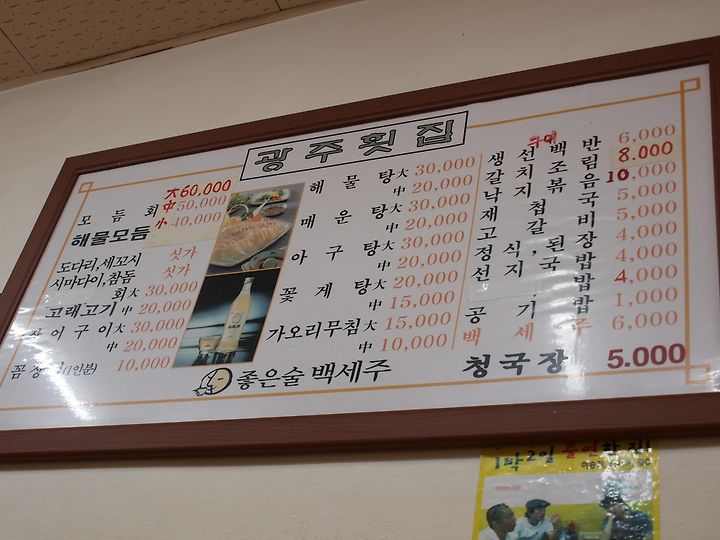 광주횟집
모듬회 大60,000
中50,000
小40,000
해물모듬
도다리,세꼬시 싯가
시마다이,참돔 싯가
회大 30,000
고래고기 中 20,000
장어구이大 30,000
中 20,000
꼼장어(1인분) 10,000
해물탕大 30,000
中 20,000
매운탕大 30,000
中 20,000
아구탕大 30,000
中 20,000
꽃게탕大 20,000
中 15,000
가오리무침大 15,000
中 10,000
좋은술 백세주
구이
생선백반 6,000
갈치조림 8.000
낙지볶음 10,000
재첩국 5,000
고갈비 5,000
정식,된장 4,000
선지국밥 4,000
밥 4,000
공기밥 1,000
백세주 6,000
청국장 5.000
1박2일 출연한 집!